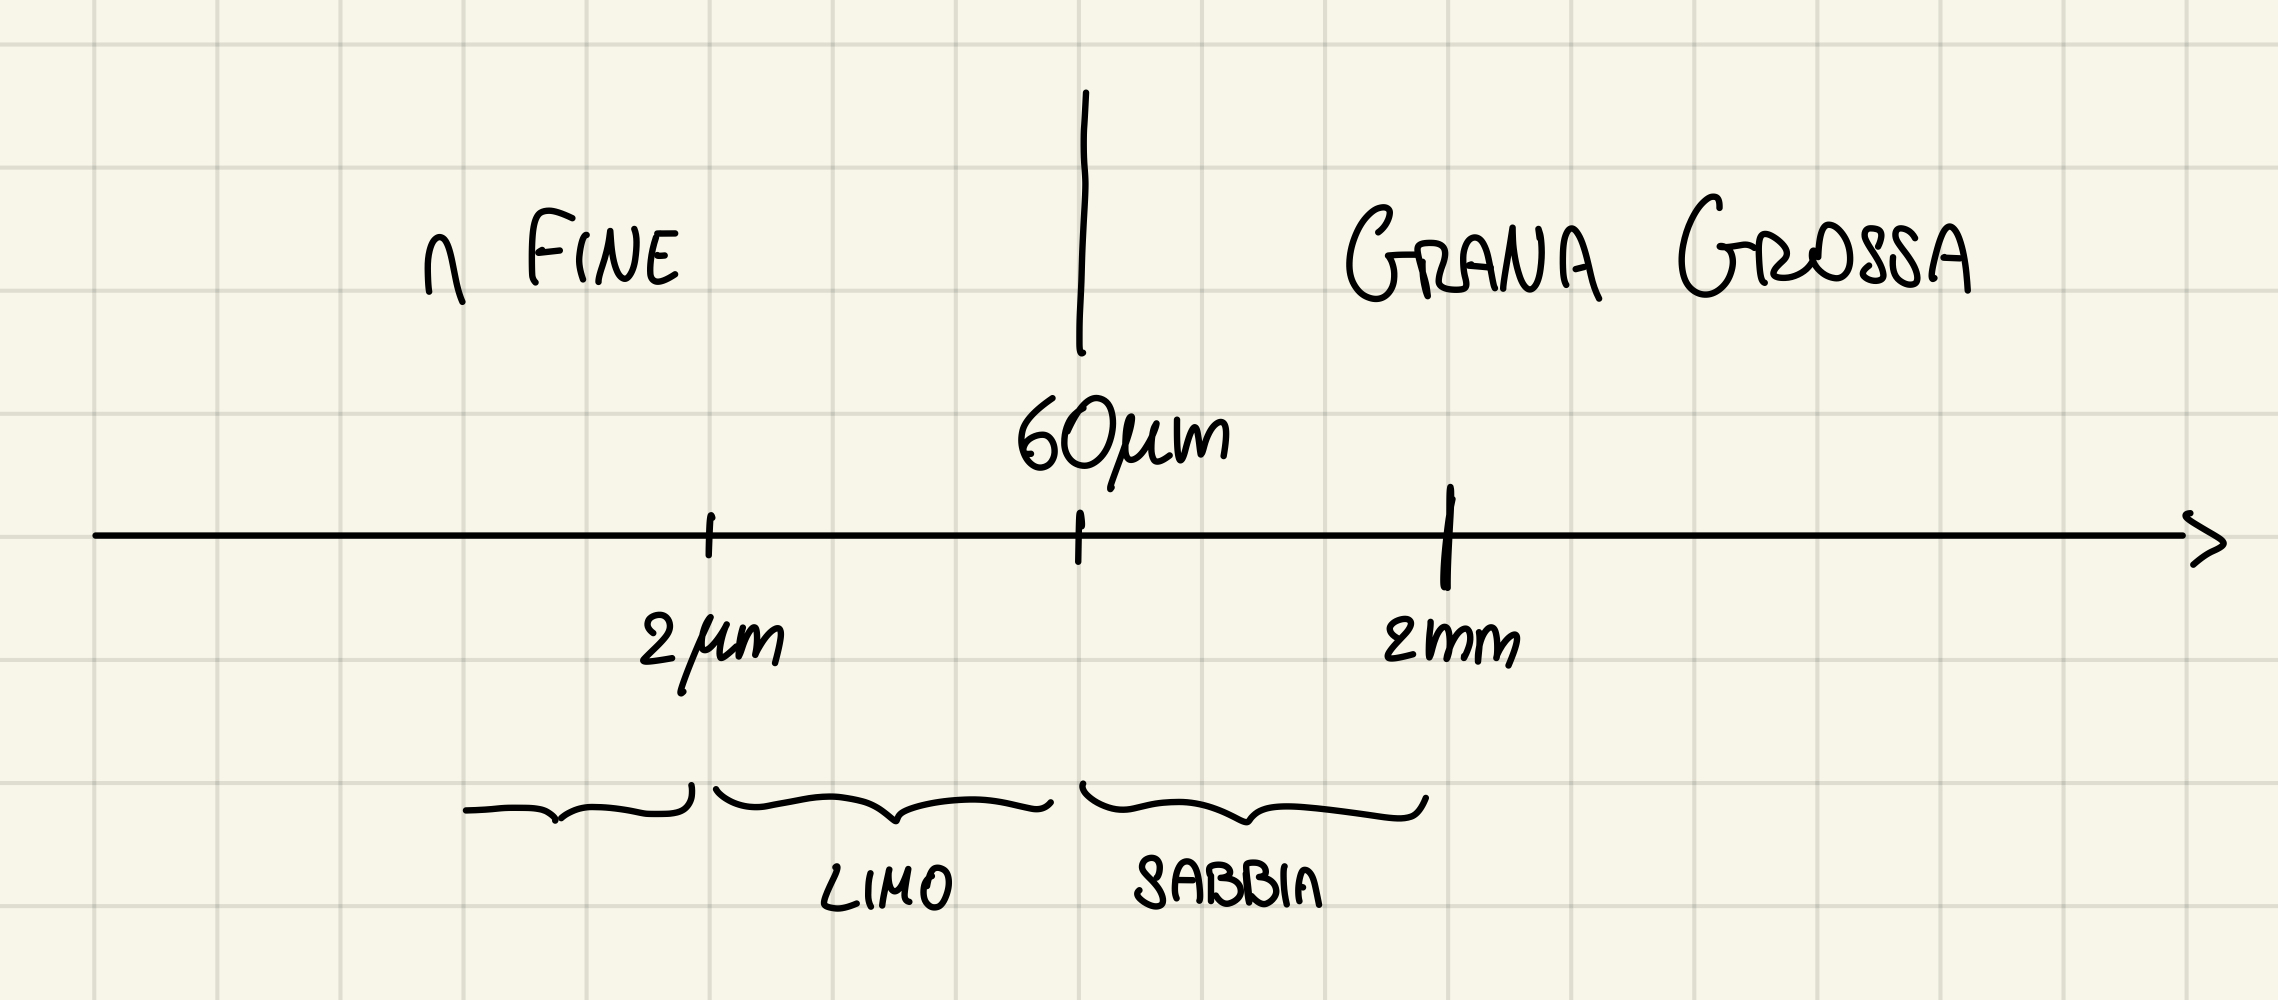 FINE GRANA GROSSA
60µm
2µm 2mm
LIMO SABBIA